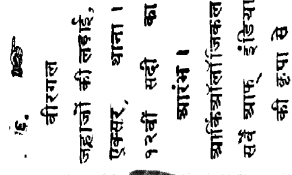 ६.
वीरगल
जहाजों की लड़ाई,
एक्सर, थाना।
१२वीं सदी का
आरंभ।
आर्किऑलॉजिकल
सर्वे आफ् इंडिया
की कृपा से